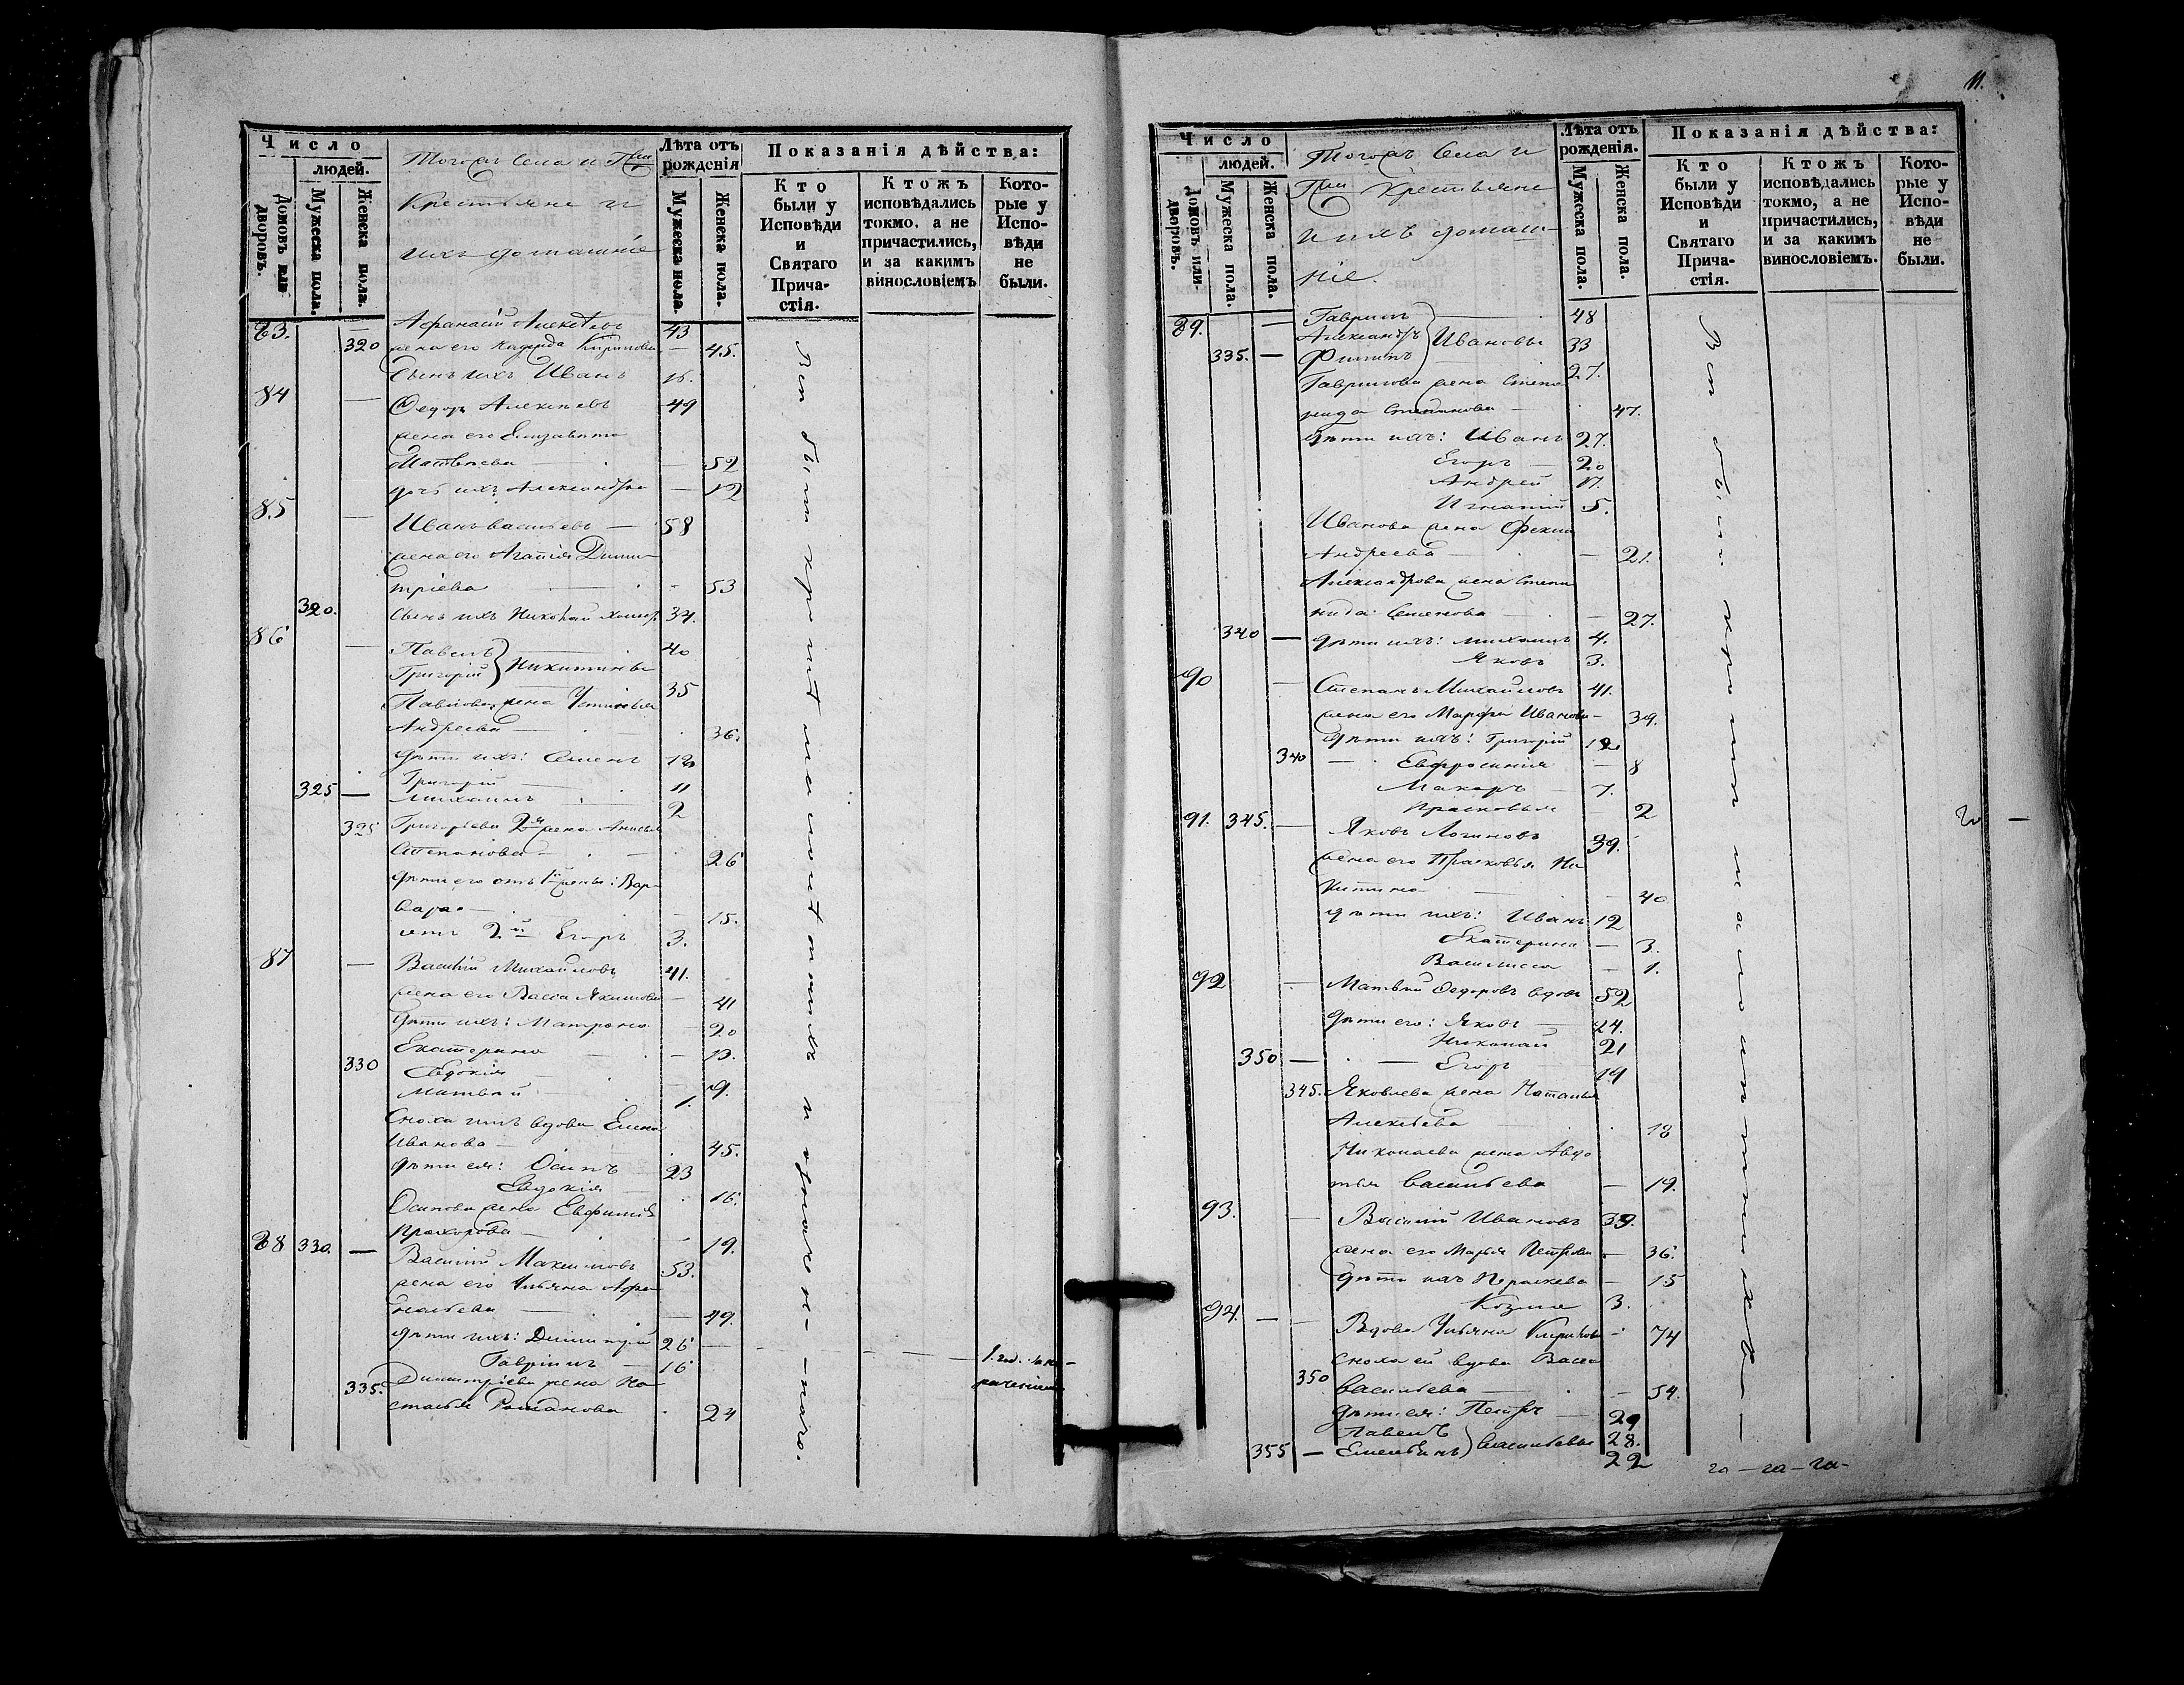 Число
людей.
Домовъ или дворовъ.
Мужеска пола.
Женска пола.
Тогожъ Села и
Крестьяне и
ихъ домашніе
Лѣта отъ рожденія
Мужеска пола.
Женска пола.
Показанія дѣйства:
Кто были у Исповѣди и Святаго Причастія.
Ктожъ исповѣдались токмо, а не причастились, и за какимъ винословіемъ
Которые у Исповѣди не были.
83. — Афанасій Алексѣевъ 43
320 жена его Кирилова — 45.
Сынъ ихъ Иванъ 16.
84 — Ѳедоръ Алексѣевъ 49
жена его Елизавета
Матвѣева — — 52
дочь ихъ Александра — 12
85 — Иванъ Васильевъ — 58
жена его Агапія Дими-
тріева — — 53
320. Сынъ ихъ Николай холос. 34.
86 — Павелъ 40
Григорій } Никитины 35
Павлова жена Устинья
Андреева — 36.
дѣти ихъ: Семенъ 12
Григорій 11
325 — Михаилъ 2
325 Григорьева 2я жена Анисья
Степанова — 26
дѣти его отъ 1й жены: Вар-
вара — — 15.
отъ 2й Егоръ 3.
87 — Василій Михайловъ 41.
жена его Васса Якимова — 41
дѣти ихъ: Матрона — 20
Екатерина — 13.
330 Евдокія — 9.
Матвѣй 1.
Сноха ихъ вдова Елена
Иванова — 45.
дѣти ея: Осипъ 23
Евдокія — 16.
Осипова жена Евфимія
Прохорова — 19.
88 330. — Василій Максимовъ 53.
жена его Ульяна Афа-
насьева — — 49.
дѣти ихъ: Димитрій 26
Гавріилъ — 16
335. Димитріева жена На-
стасья Романова 24
Вси были кромѣ
1.
11.
Число
людей.
Домовъ или дворовъ.
Мужеска пола.
Женска пола.
Тогожъ Села и
Крестьяне
и ихъ домаш-
ніе.
Лѣта отъ рожденія.
Мужеска пола.
Женска пола.
Показанія дѣйства:
Кто были у Исповѣди и Святаго Причастія.
Ктожъ исповѣдались токмо, а не причастились, и за какимъ винословіемъ.
Которые у Исповѣди не были.
89. — Гаврилъ 48
Александръ } Ивановы 33
335. — Филипъ 27.
Гаврилова жена Степа-
нида Степанова — 47.
дѣти ихъ: Иванъ 27.
Егоръ — 20
Андрей 17.
Игнатій 5.
Иванова жена Фекла
Андреева — — 21.
Александрова жена Степа
нида Семенова — — 27.
340 — дѣти ихъ: Михаилъ 4.
Яковъ 3.
90 — Степанъ Михайловъ 41.
жена его Марфа Иванова — 39.
дѣти ихъ: Григорій 12
340 — Евфросинія — 8
Макаръ — 7.
Прасковья 2
91. 345. — Яковъ Логиновъ 39.
жена его Прасковья Ни
китина — 40
дѣти ихъ: Иванъ 12
Екатерина — 3.
Василисса — 1.
92 — Матвѣй Ѳедоровъ вдовъ 52
дѣти его: Яковъ — 24.
Николай 21
350 — — Егоръ 19
345. Яковлева жена Наталья
Алексѣева 18
Николаева жена Авдо
тья Васильева — 19.
93. — Василій Ивановъ 39.
жена его Марья Петрова — 36.
дѣти ихъ Параскева — 15
Козма 3.
94. — Вдова Ульяна Кирилова — 74
Сноха ей вдова Васса
350 Васильева — — 54.
дѣти ея: Петръ — 29
Павелъ 28.
355 — Емельянъ } Васильевы 22
Вси были кроми малолѣтнихъ —